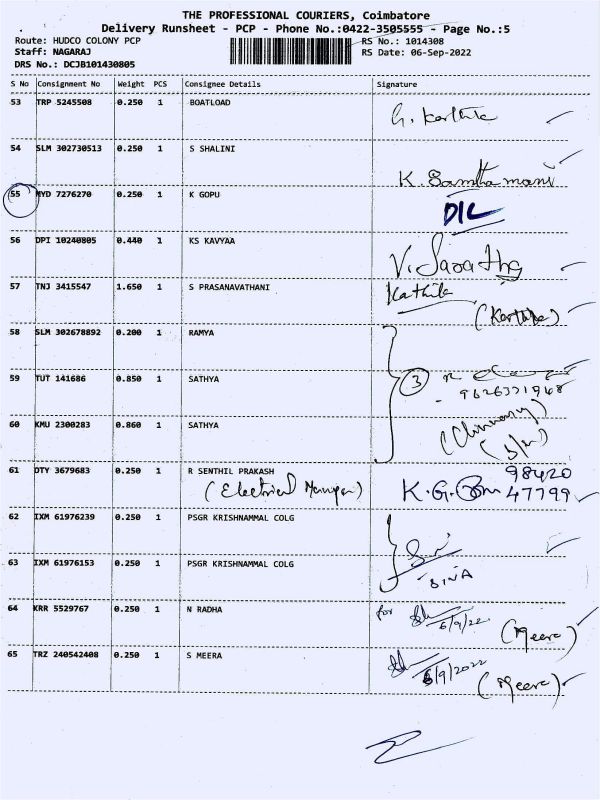 THE PROFESSIONAL COURIERS, Coimbatore
Delivery Runsheet - PCP - Phone No.:0422-3505555 - Page No.:5
Route: HUDCO COLONY PCP
RS No.: 1014308
Staff: NAGARAJ
RS Date: 06-Sep-2022
DRS No.: DCJB101430805
S No Consignment No Weight PCS Consignee Details Signature
53 TRP 5245508 0.250 1 BOATLOAD
G. Karthik
54 SLM 302730513 0.250 1 S SHALINI
K. Santhamani
55 MYD 7276270 0.250 1 K GOPU
D/L
56 DPI 10240805 0.440 1 KS KAVYAA
57 TNJ 3415547 1.650 1 S PRASANAVATHANI
58 SLM 302678892 0.200 1 RAMYA
59 TUT 141686 0.850 1 SATHYA
3
60 KMU 2300283 0.860 1 SATHYA
61 DTY 3679683 0.250 1 R SENTHIL PRAKASH
98420
(Electrical Manager) K.G. 47799
62 IXM 61976239 0.250 1 PSGR KRISHNAMMAL COLG
63 IXM 61976153 0.250 1 PSGR KRISHNAMMAL COLG
64 KRR 5529767 0.250 1 N RADHA
for 6/9/22
(Meera)
65 TRZ 240542408 0.250 1 S MEERA
6/9/2022
(Meera)